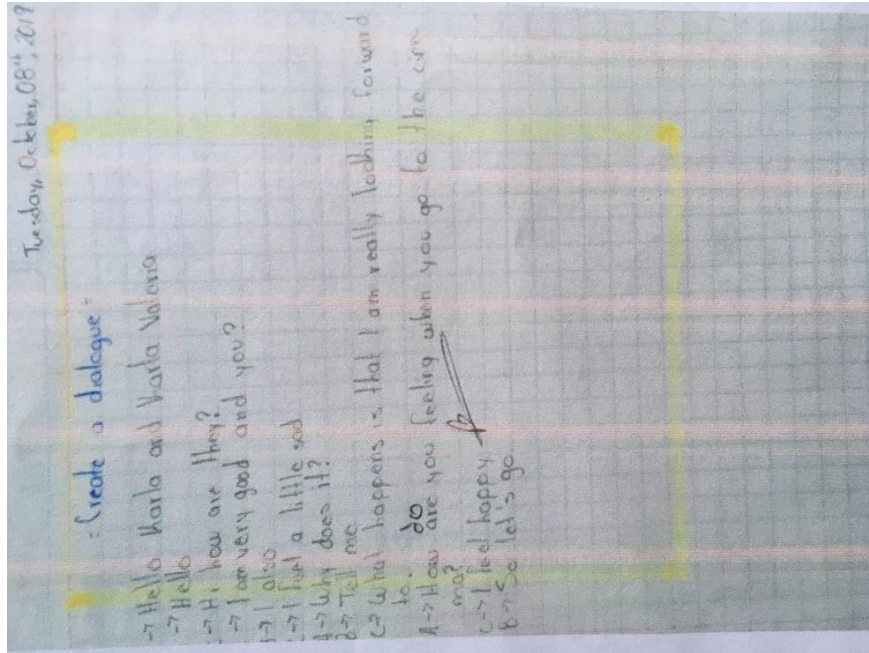 Tuesday, October, 08th, 2019
"Create a dialogue"
-> Hello Karla and Karla Valeria
-> Hello
-> Hi how are they?
-> I am very good and you?
-> I also
-> I feel a little sad
A-> Why does it?
B-> Tell me
C-> What happens is that I am really looking forward
to.
do
A-> How are you feeling when you go to the cine
ma?
C-> I feel happy
B-> So let's go.